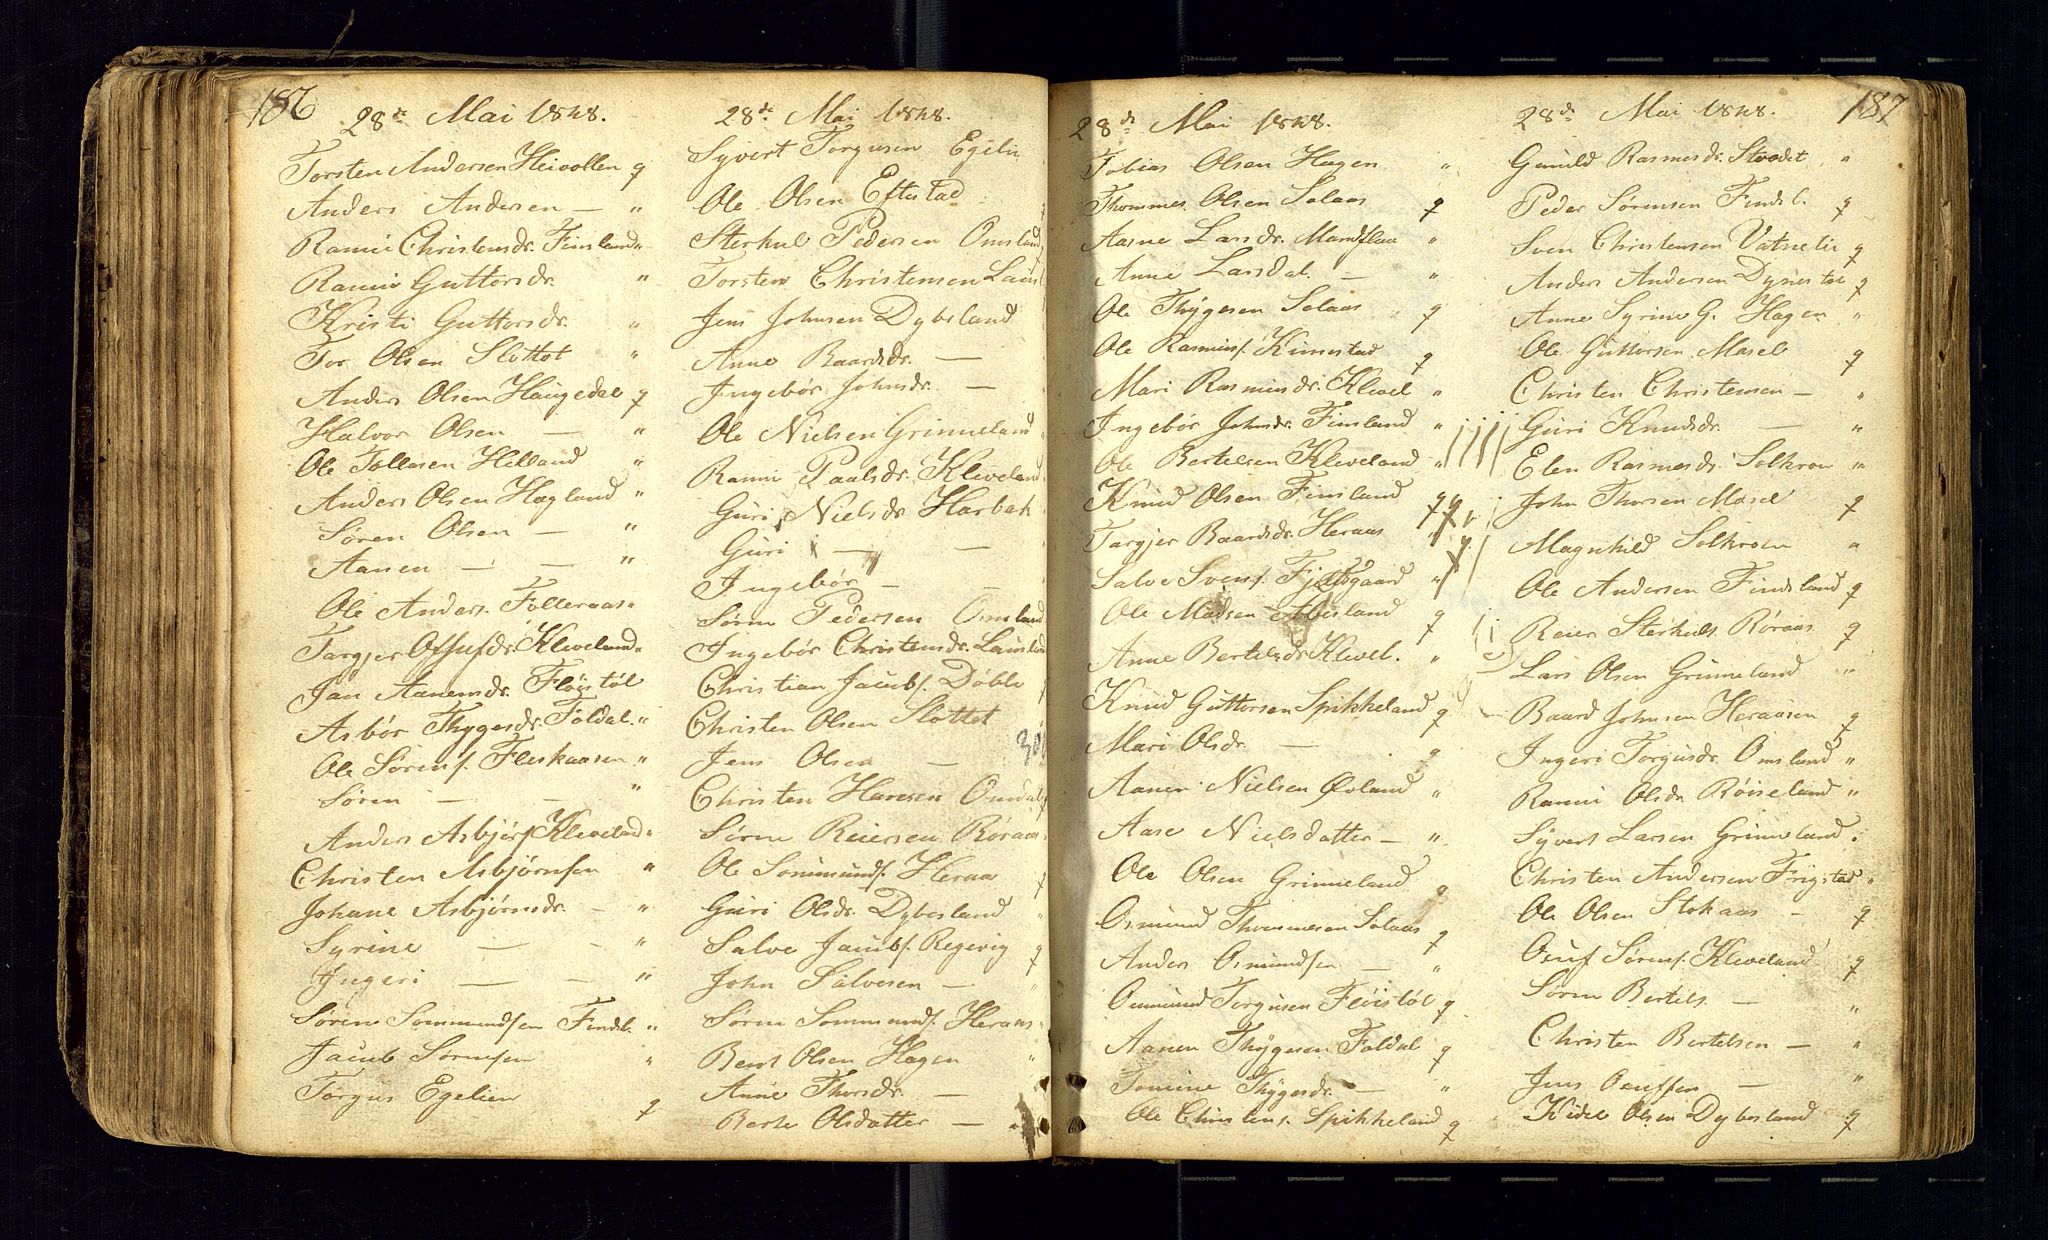 186
28de Mai 1848.
Torsten Andersen Heivollen q
Anders Andersen — "
Ranni Christensdr. Finsland "
Ranni Guttorsdr. "
Kristi Guttorsdr. "
Tor Olsen Slottet "
Anders Olsen Haugedal q
Halvor Olsen — "
Ole Tollesen Helland "
Anders Olsen Hagland "
Sören Olsen — "
Aanen — — "
Ole Anders. Folleraas "
Targjer Osufdr. Kleveland "
Jan Aanensdr. Flöistöl
Asbör Thygesdr. Foldal. "
Ole Sörens. Fleskaasen "
Sören — — "
Anders Asbjörs. Kleveland "
Christen Asbjörnsen "
Johane Asbjörnsdr. — "
Syrine — — "
Ingeri — — "
Sören Sommundsen Findsl. "
Jacob Sörensen "
Torgus Egelien q
28de Mai 1848.
Syvert Torgusen Egelie
Ole Olsen Eftestad
Sterkul Pedersen Omsland
Torsten Christensen Laus
Jens Johnsen Dybesland
Anne Baardsdr. —
Ingebör Johnsdr. —
Ole Nielsen Grimeland
Ranni Paalsdr. Kleveland
Guri Nielsdr Harbak
Guri — —
Ingebör — —
Sören Pedersen Omsland
Ingebör Christensdr. Lausland
Christian Jacobs. Döble
Christen Olsen Slottet
Jens Olsen —
Christen Hansen Omdal
Sören Reiersen Röraas
Ole Sommunds. Heraas
Guri Olsdr. Dybesland
Salve Jacobs. Regevig q
John Salvesen —
Sören Sommunds. Heraas
Bent Olsen Hagen
Anne Thorsdr. —
Berte Olsdatter —
28de Mai 1848.
Tobias Olsen Hagen "
Thommes Olsen Solaas q
Aasne Larsdr. Mandflaa "
Anne Larsdal. — "
Ole Thygesen Solaas q
Ole Rasmus. Kimestad q
Mari Rasmusdr. Klevel "
Ingebör Johnsdr. Finsland "
Ole Bertelsen Kleveland "
Knud Olsen Finsland q
Targjer Baardsdr. Heraas
Salve Svens. Fjeldsgaard "
Ole Madsen Abusland q
Anne Bertelsdr. Klevel. "
Knud Guttorsen Spikkeland q
Mari Olsdr. — q
Aanen Nielsen Øvland "
Aase Nielsdatter — "
Ole Olsen Grimeland q
Osmund Thommesen Solaas q
Anders Osmundsen — "
Osmund Torgusen Flöistöl q
Aanen Thygesen Foldal q
Tomine Thygesdr. — "
Ole Christens. Spikkeland q
187
28de Mai 1848.
Gunild Rasmusdr. Stoedet "
Peder Sörensen Findsl. q
Sven Christensen Vatnelie q
Anders Andersen Dynestöl q
Anne Syrine G. Hagen "
Ole Guttorsen Mosel q
Christen Christensen — "
Guri Knudsdr. — "
Elen Rasmusdr. Solkron "
John Thorsen Mosel q
Magnhild Solkron "
Ole Andersen Findsland q
Reier Sterkuls. Röraas q
Lars Olsen Grimeland "
Baard Johnsen Heraasen q
Ingeri Torgusdr. Omsland "
Ranni Olsdr Röiseland "
Syvert Larsen Grimeland "
Christen Andersen Frigstad "
Ole Olsen Stokaas — q
Osuf Sörens. Kleveland q
Sören Bertels. — "
Christen Bertelsen — "
Jens Osufsen — "
Kidel Olsen Dybesland q